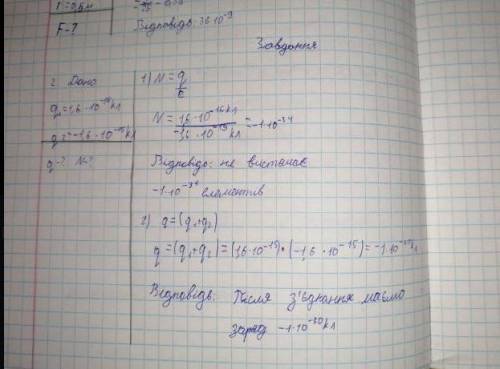 F-?
Відповідь: 36·10⁻⁹
Завдання
2. Дано
q₁=1,6·10⁻¹⁶кл
q₂=-1,6·10⁻¹⁵кл
q-? N-?
1) N=q/e
N=1,6·10⁻¹⁶кл/-1,6·10⁻¹⁹кл=-1·10⁻³⁴
Відповідь: не вистачає
-1·10⁻³⁴ елементів
2) q=(q₁+q₂)
q=(q₁+q₂)=(1,6·10⁻¹⁵)·(-1,6·10⁻¹⁵)=-1·10⁻³⁰кл
Відповідь: Після з'єднання маємо
заряд -1·10⁻³⁰кл